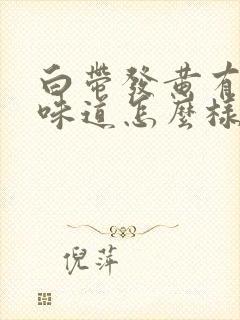 白帶發黄有
味道怎麽樣
倪萍